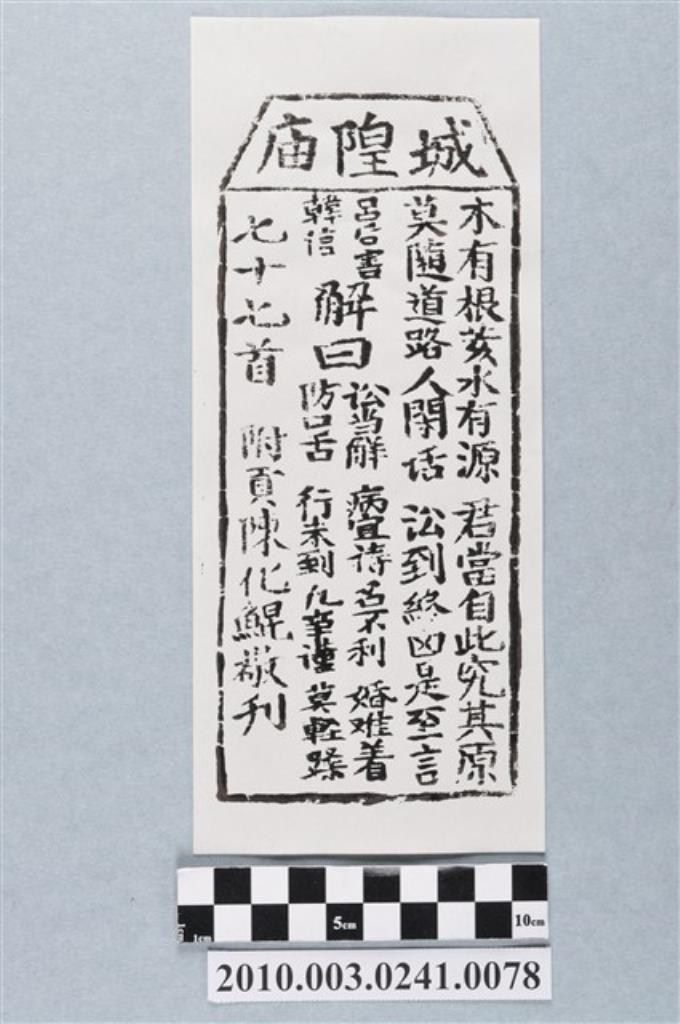 城隍庙
木有根荄水有源 君當自此究其原
莫隨道路人閑话 讼到終凶是至言
呂后害
韓信
解曰
讼当解 病宜诗 名不利 婚难着
防口舌 行未到 凡事谨 莫軽躁
七十七首 附頁陳化鯤敬刋
5cm
10cm
1cm
2010.003.0241.0078